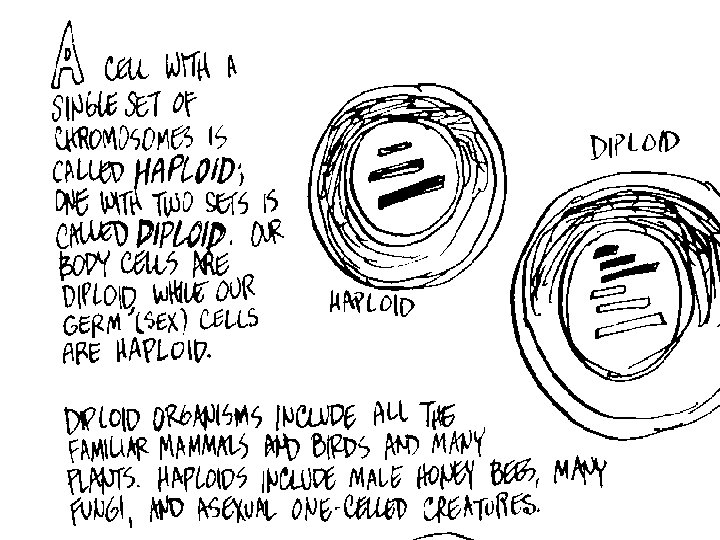 A CELL WITH A
SINGLE SET OF
CHROMOSOMES IS
CALLED HAPLOID;
ONE WITH TWO SETS IS
CALLED DIPLOID. OUR
BODY CELLS ARE
DIPLOID, WHILE OUR
GERM (SEX) CELLS
ARE HAPLOID.
HAPLOID
DIPLOID
DIPLOID ORGANISMS INCLUDE ALL THE
FAMILIAR MAMMALS AND BIRDS AND MANY
PLANTS. HAPLOIDS INCLUDE MALE HONEY BEES, MANY
FUNGI, AND ASEXUAL ONE-CELLED CREATURES.